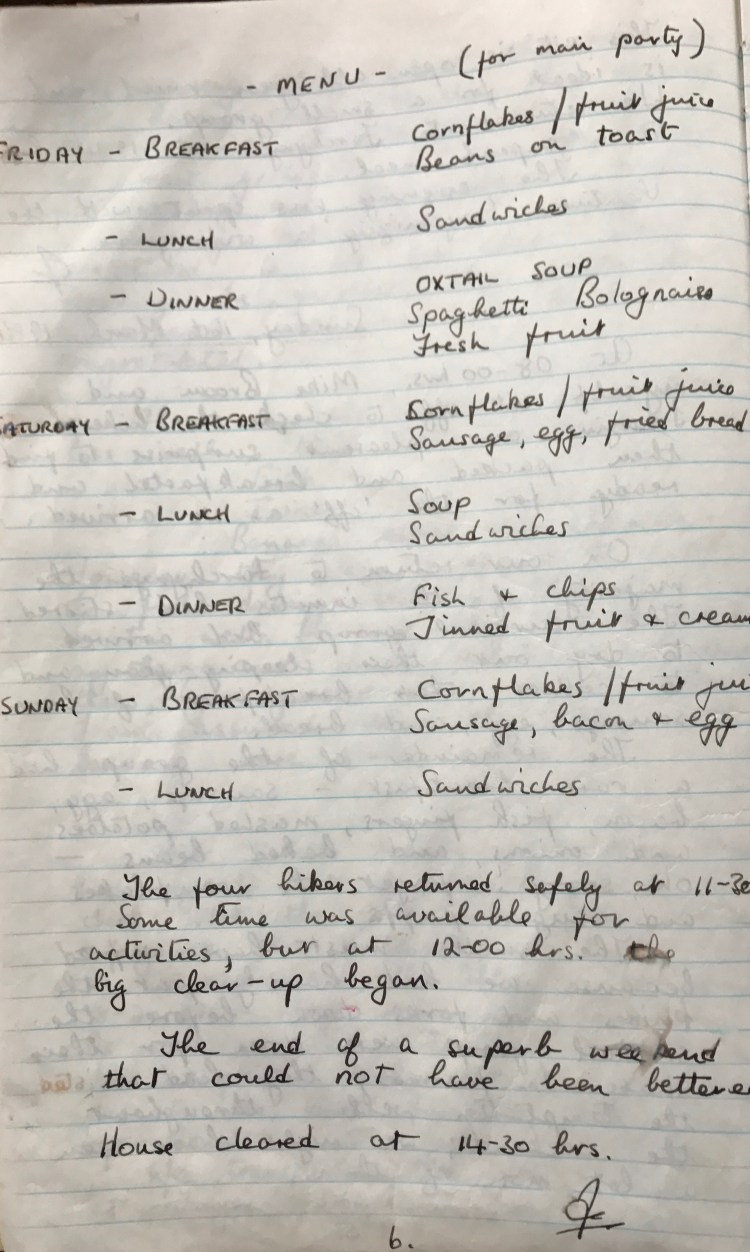 - MENU - (for main party)
FRIDAY - BREAKFAST Cornflakes / fruit juice
Beans on toast
- LUNCH Sandwiches
- DINNER OXTAIL SOUP
Spaghetti Bolognaise
Fresh fruit
SATURDAY - BREAKFAST Cornflakes / fruit juice
Sausage, egg, fried bread
- LUNCH Soup
Sandwiches
- DINNER Fish & chips
Tinned fruit & cream
SUNDAY - BREAKFAST Cornflakes / fruit jui
Sausage, bacon & egg
- LUNCH Sandwiches
The four hikers returned safely at 11-30
Some time was available for
activities, but at 12-00 hrs. the
big clear-up began.
The end of a superb weekend
that could not have been bettere
House cleared at 14-30 hrs.
6.